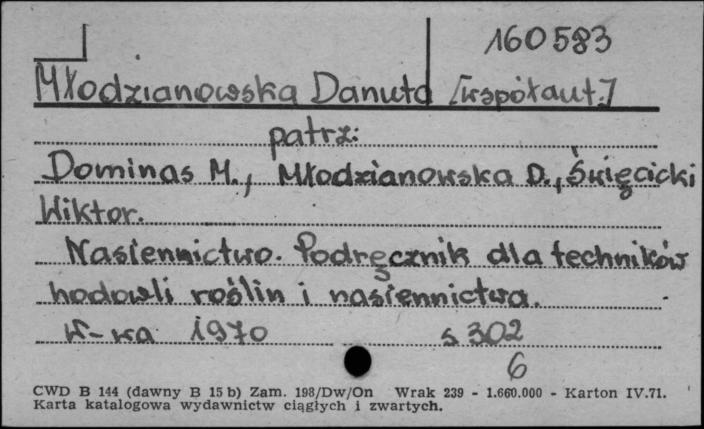 160583
Młodzianowska Danuta [współaut.]
patrz:
Dominas M., Młodzianowska D., Święcicki
Wiktor.
Nasiennictwo. Podręcznik dla techników
hodowli roślin i nasiennictwa.
W-wa 1970 s 302
6
CWD B 144 (dawny B 15 b) Zam. 198/Dw/On Wrak 239 - 1.660.000 - Karton IV.71.
Karta katalogowa wydawnictw ciągłych i zwartych.